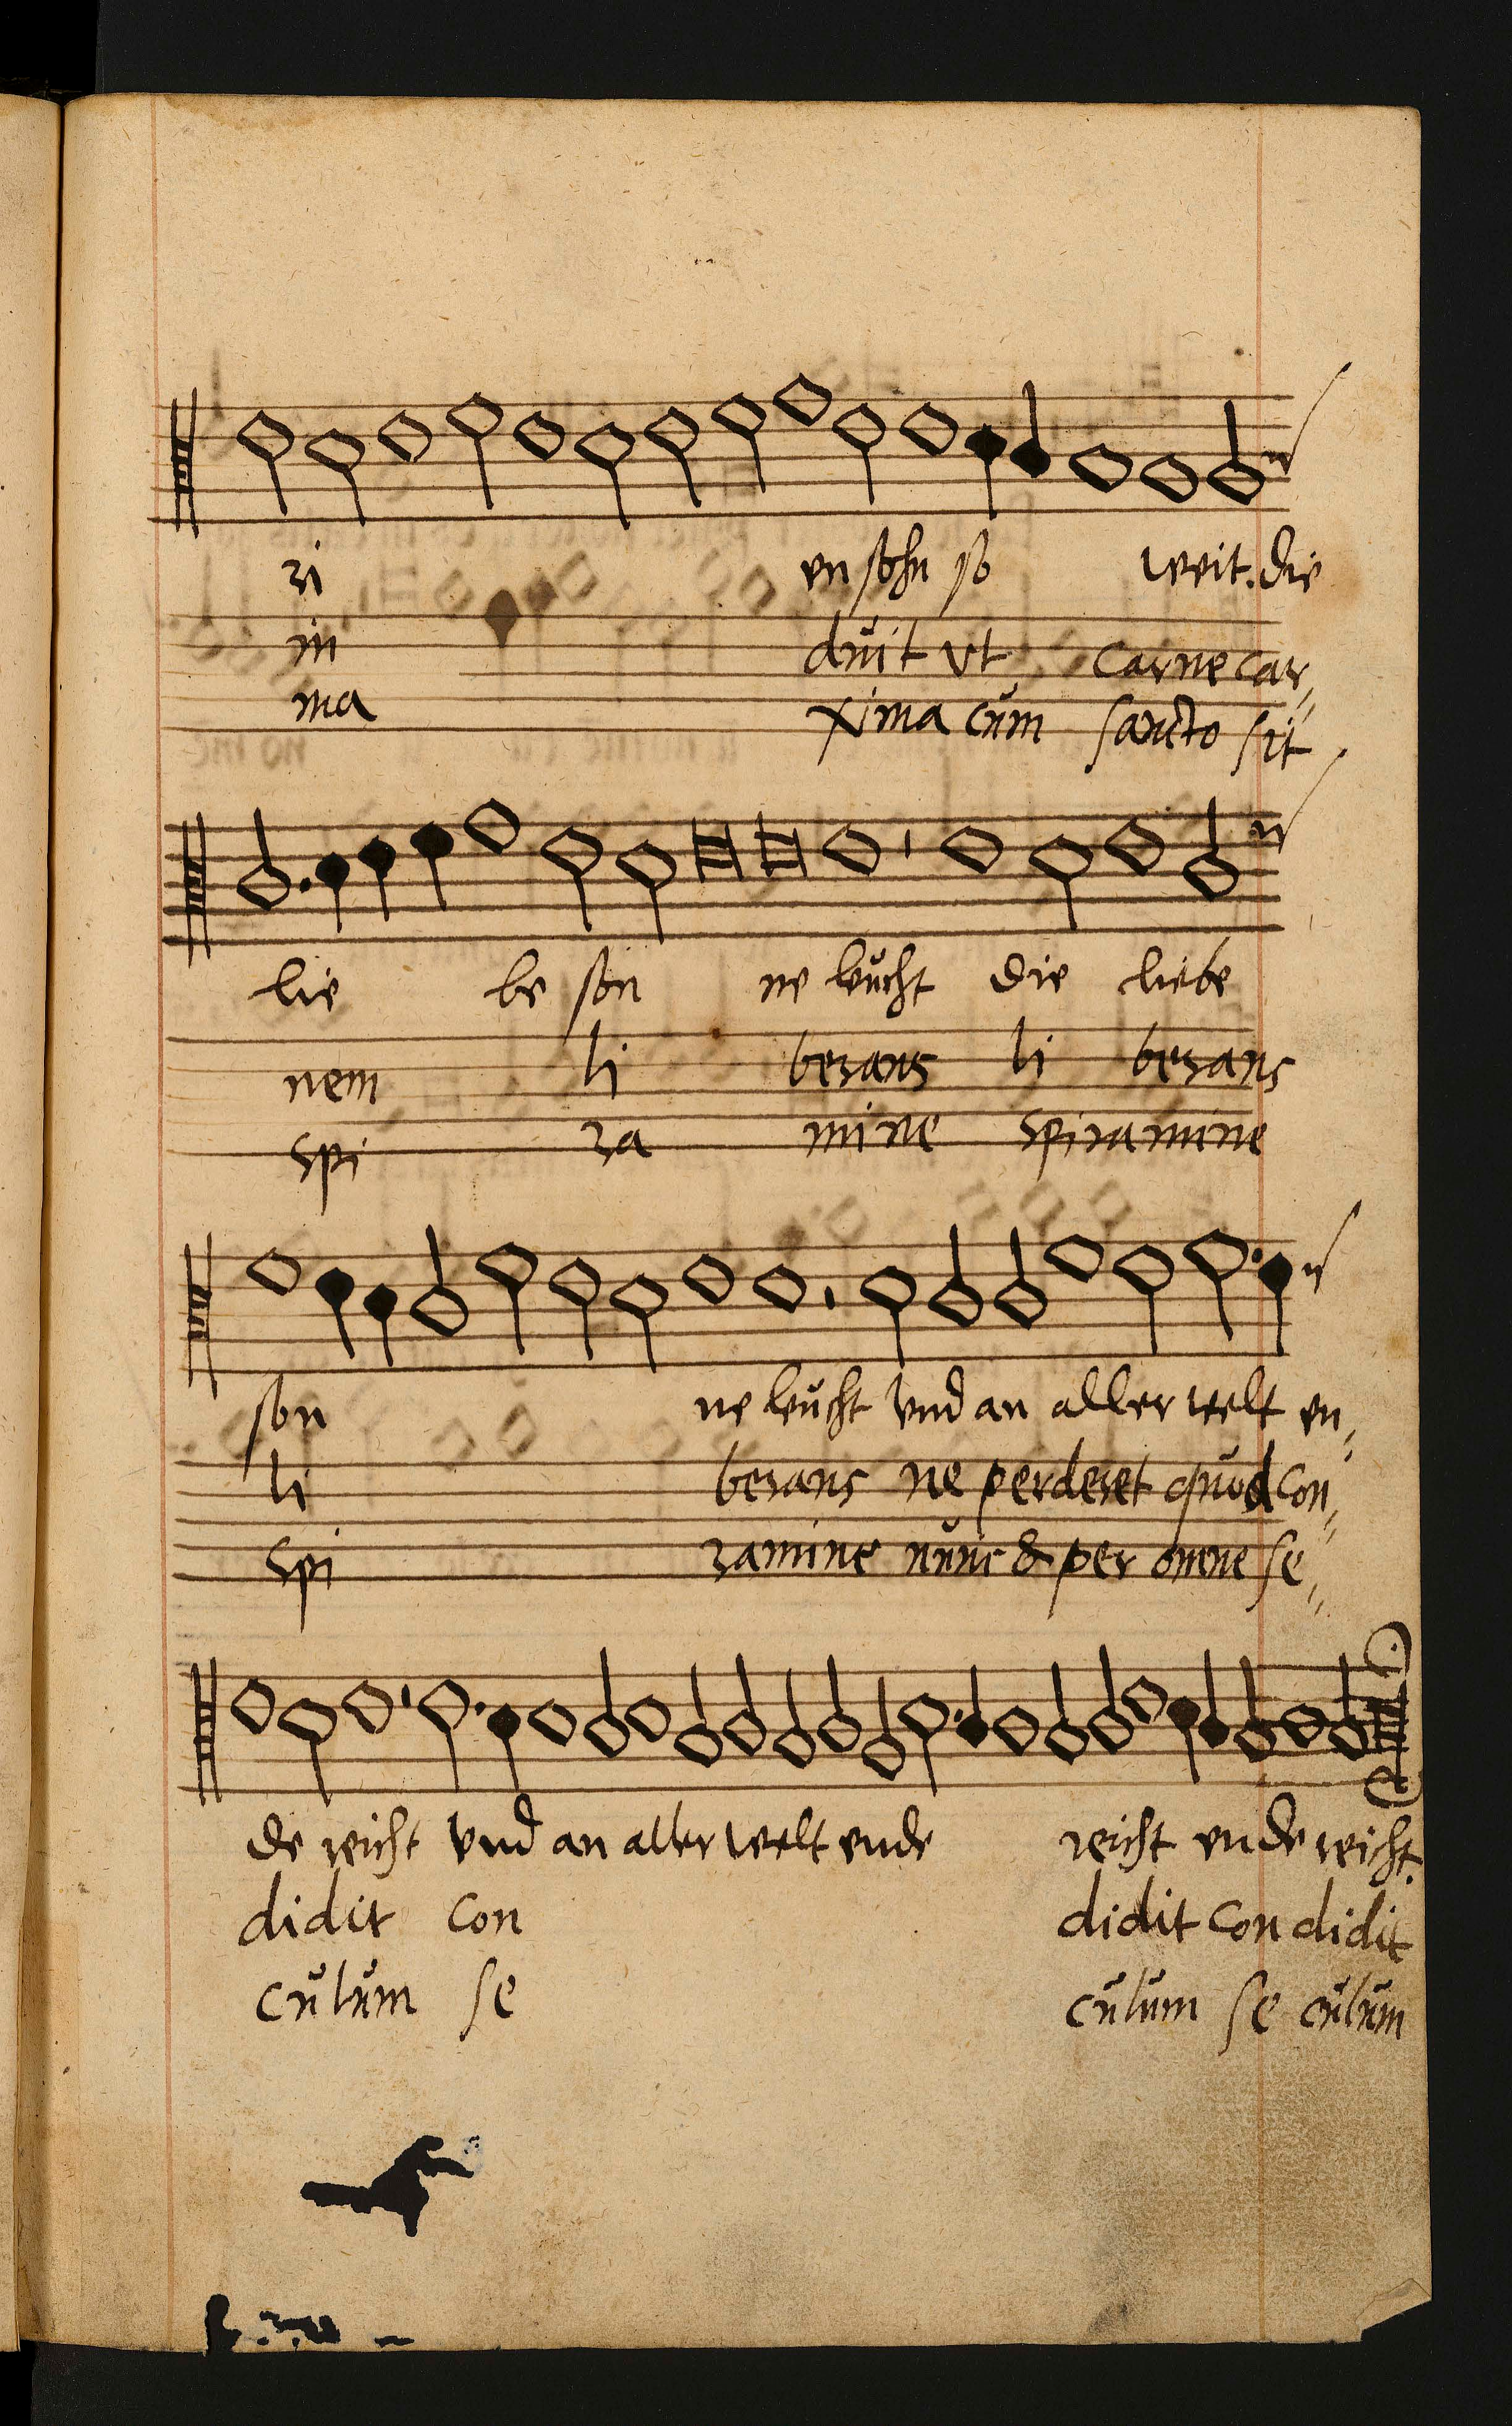 ri en sohn so weit. die
in duit vt carne car¸¸
ma xima cum sancto sit
lie be son ne leucht die liebe
nem li berans li berans
spi ra mine spiramine
son ne leucht vnd an aller welt en¸¸
li berans ne perderet quod con¸¸
spi ramine nunc & per omne se¸¸
de reicht vnd an aller welt ende reicht ende reicht.
didit con didit con didit
culum se culum se culum